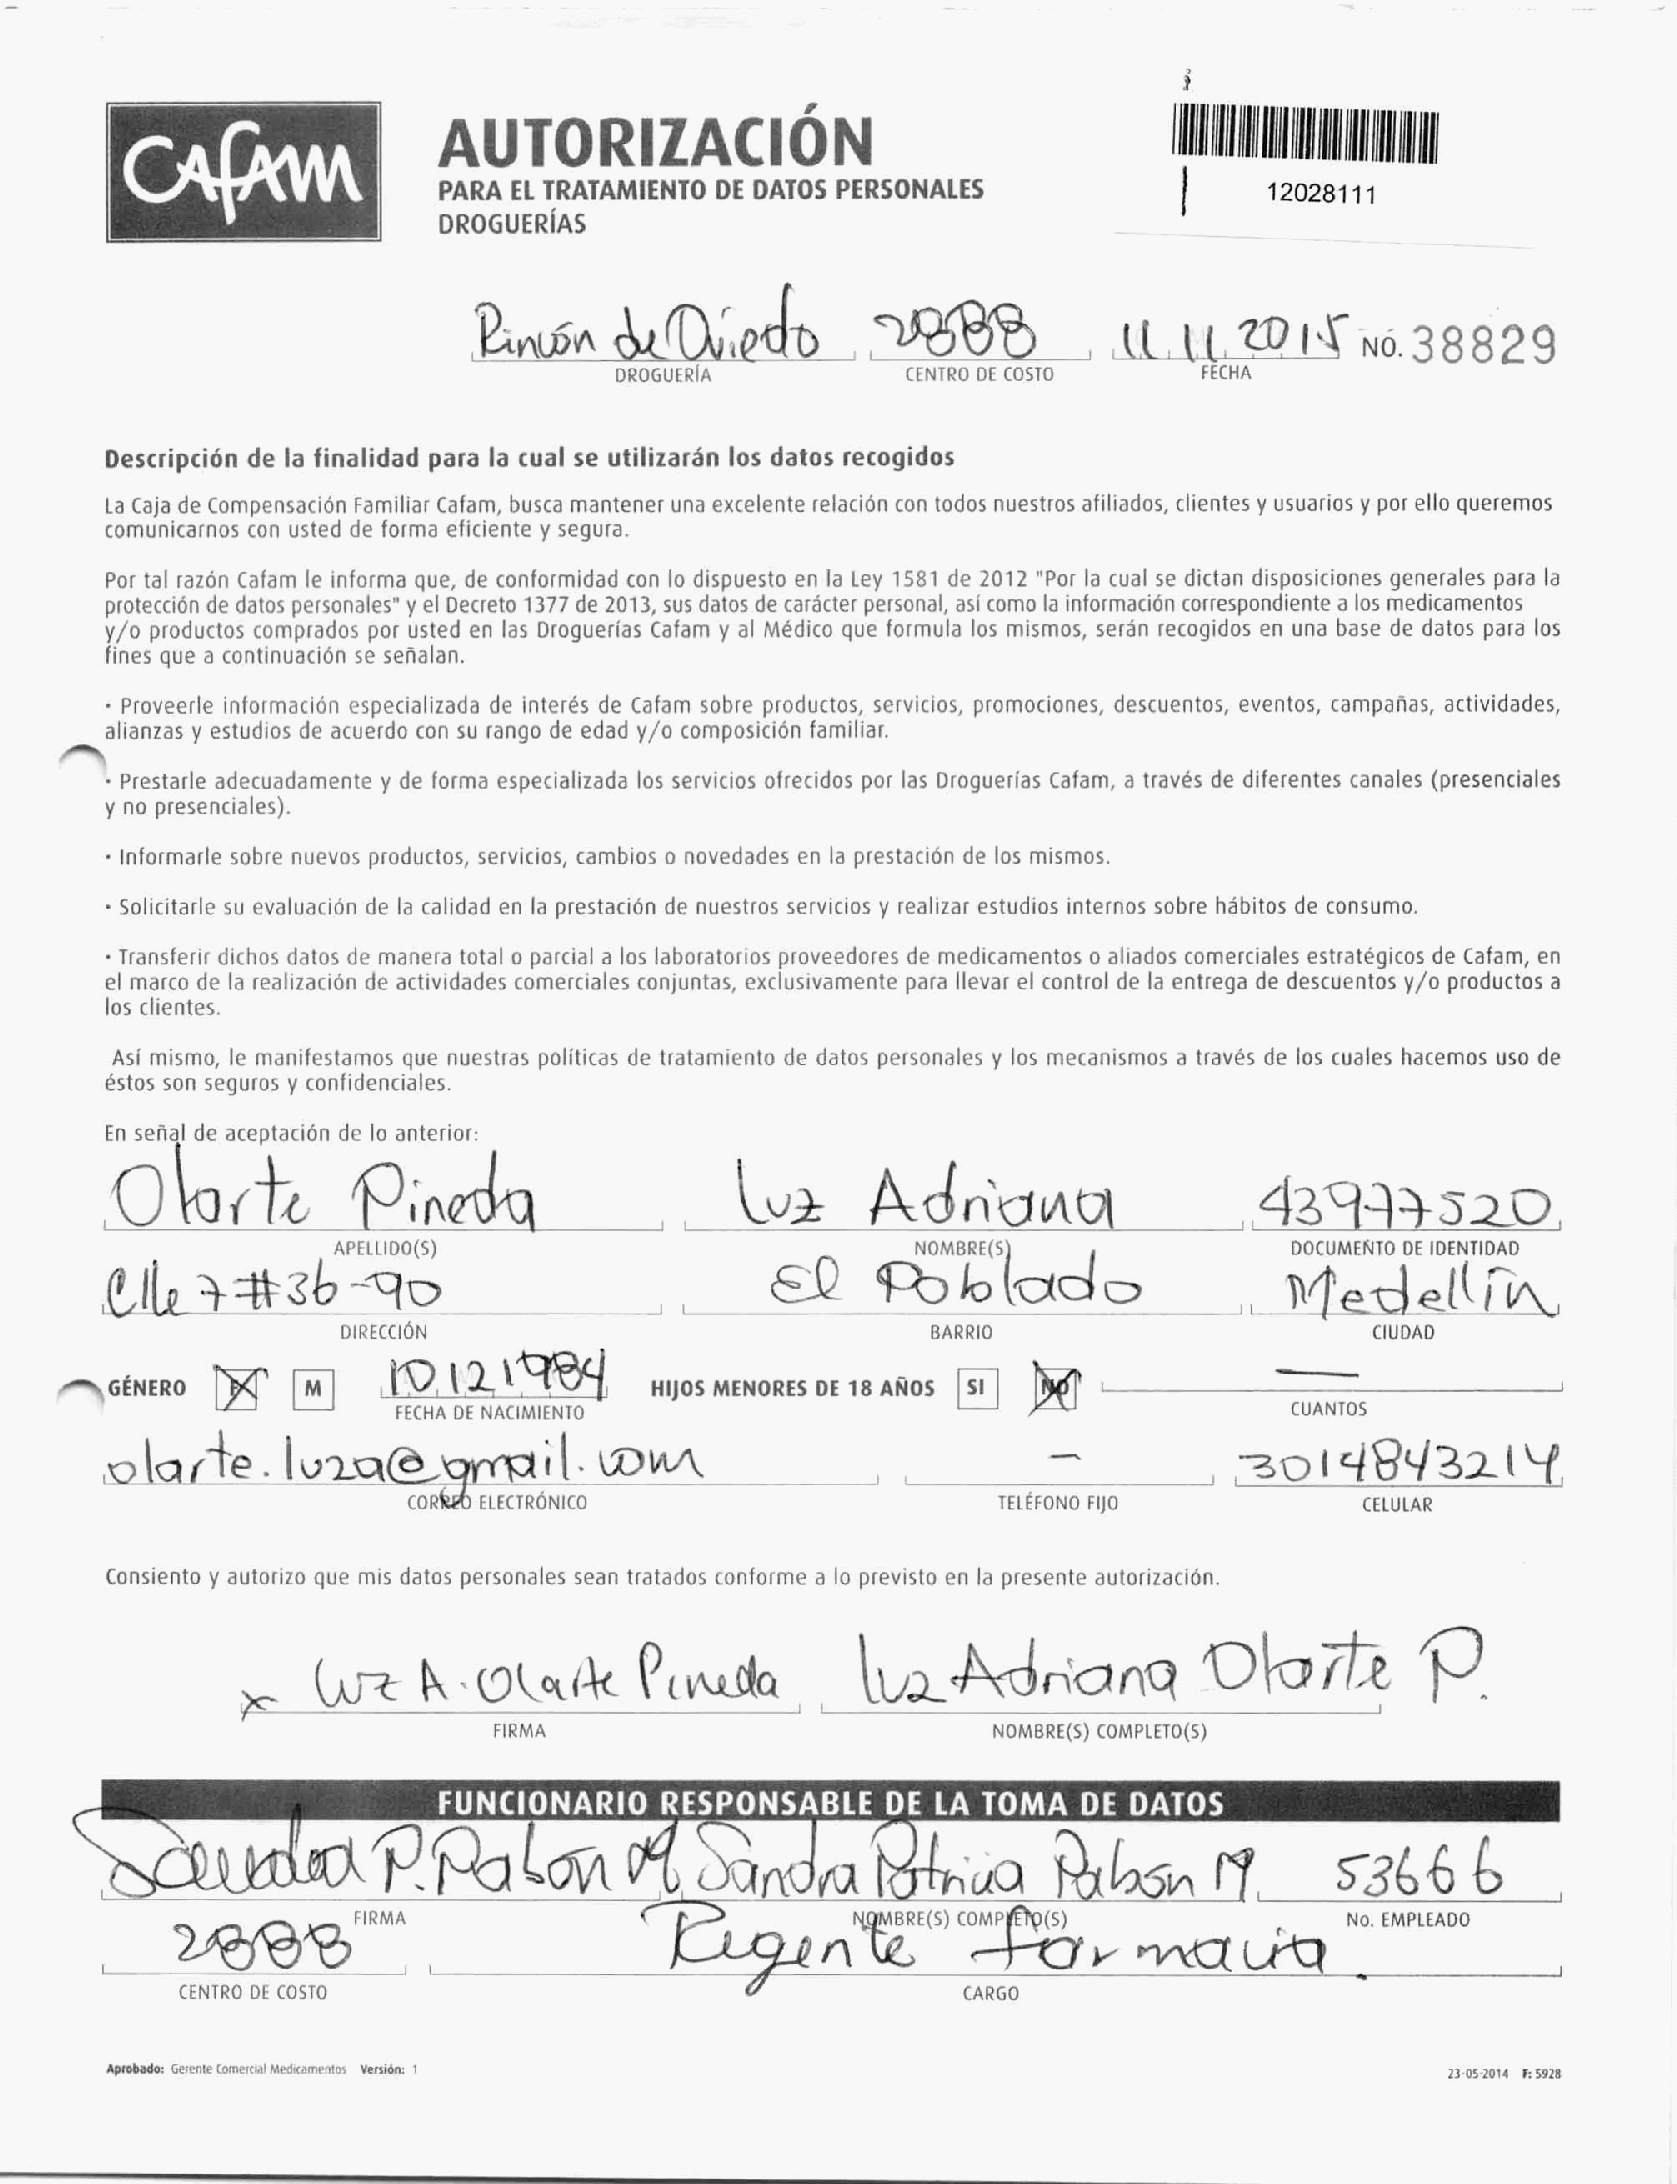 Cafam
AUTORIZACIÓN
PARA EL TRATAMIENTO DE DATOS PERSONALES
DROGUERÍAS
12028111
Rincón de Oviedo 2888 11 11 2015 NO. 38829
DROGUERÍA CENTRO DE COSTO FECHA
Descripción de la finalidad para la cual se utilizarán los datos recogidos
La Caja de Compensación Familiar Cafam, busca mantener una excelente relación con todos nuestros afiliados, clientes y usuarios y por ello queremos
comunicarnos con usted de forma eficiente y segura.
Por tal razón Cafam le informa que, de conformidad con lo dispuesto en la Ley 1581 de 2012 "Por la cual se dictan disposiciones generales para la
protección de datos personales" y el Decreto 1377 de 2013, sus datos de carácter personal, así como la información correspondiente a los medicamentos
y/o productos comprados por usted en las Droguerías Cafam y al Médico que formula los mismos, serán recogidos en una base de datos para los
fines que a continuación se señalan.
· Proveerle información especializada de interés de Cafam sobre productos, servicios, promociones, descuentos, eventos, campañas, actividades,
alianzas y estudios de acuerdo con su rango de edad y/o composición familiar.
· Prestarle adecuadamente y de forma especializada los servicios ofrecidos por las Droguerías Cafam, a través de diferentes canales (presenciales
y no presenciales).
· Informarle sobre nuevos productos, servicios, cambios o novedades en la prestación de los mismos.
· Solicitarle su evaluación de la calidad en la prestación de nuestros servicios y realizar estudios internos sobre hábitos de consumo.
· Transferir dichos datos de manera total o parcial a los laboratorios proveedores de medicamentos o aliados comerciales estratégicos de Cafam, en
el marco de la realización de actividades comerciales conjuntas, exclusivamente para llevar el control de la entrega de descuentos y/o productos a
los clientes.
Así mismo, le manifestamos que nuestras políticas de tratamiento de datos personales y los mecanismos a través de los cuales hacemos uso de
éstos son seguros y confidenciales.
En señal de aceptación de lo anterior:
Olarte Pineda Luz Adriana 43977520
APELLIDO(S) NOMBRE(S) DOCUMENTO DE IDENTIDAD
Clle 7 # 36-90 El Poblado Medellín
DIRECCIÓN BARRIO CIUDAD
GÉNERO F M 10121984 HIJOS MENORES DE 18 AÑOS SI NO —
FECHA DE NACIMIENTO CUANTOS
olarte.luza@gmail.com - 3014843214
CORREO ELECTRÓNICO TELÉFONO FIJO CELULAR
Consiento y autorizo que mis datos personales sean tratados conforme a lo previsto en la presente autorización.
x Luz A. Olarte Pineda Luz Adriana Olarte P.
FIRMA NOMBRE(S) COMPLETO(S)
FUNCIONARIO RESPONSABLE DE LA TOMA DE DATOS
P. Pabon M Sandra Patricia Pabón M. 53666
FIRMA NOMBRE(S) COMPLETO(S) No. EMPLEADO
2888 Regente farmacia.
CENTRO DE COSTO CARGO
Aprobado: Gerente Comercial Medicamentos Versión: 1
23-05-2014 F: 5928